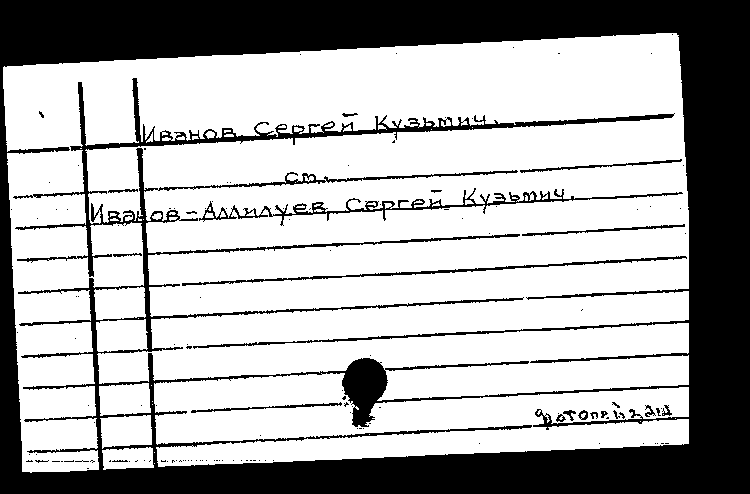 Иванов, Сергей Кузьмич.
см.
Иванов-Аллилуев, Сергей Кузьмич.
фотопейзаж